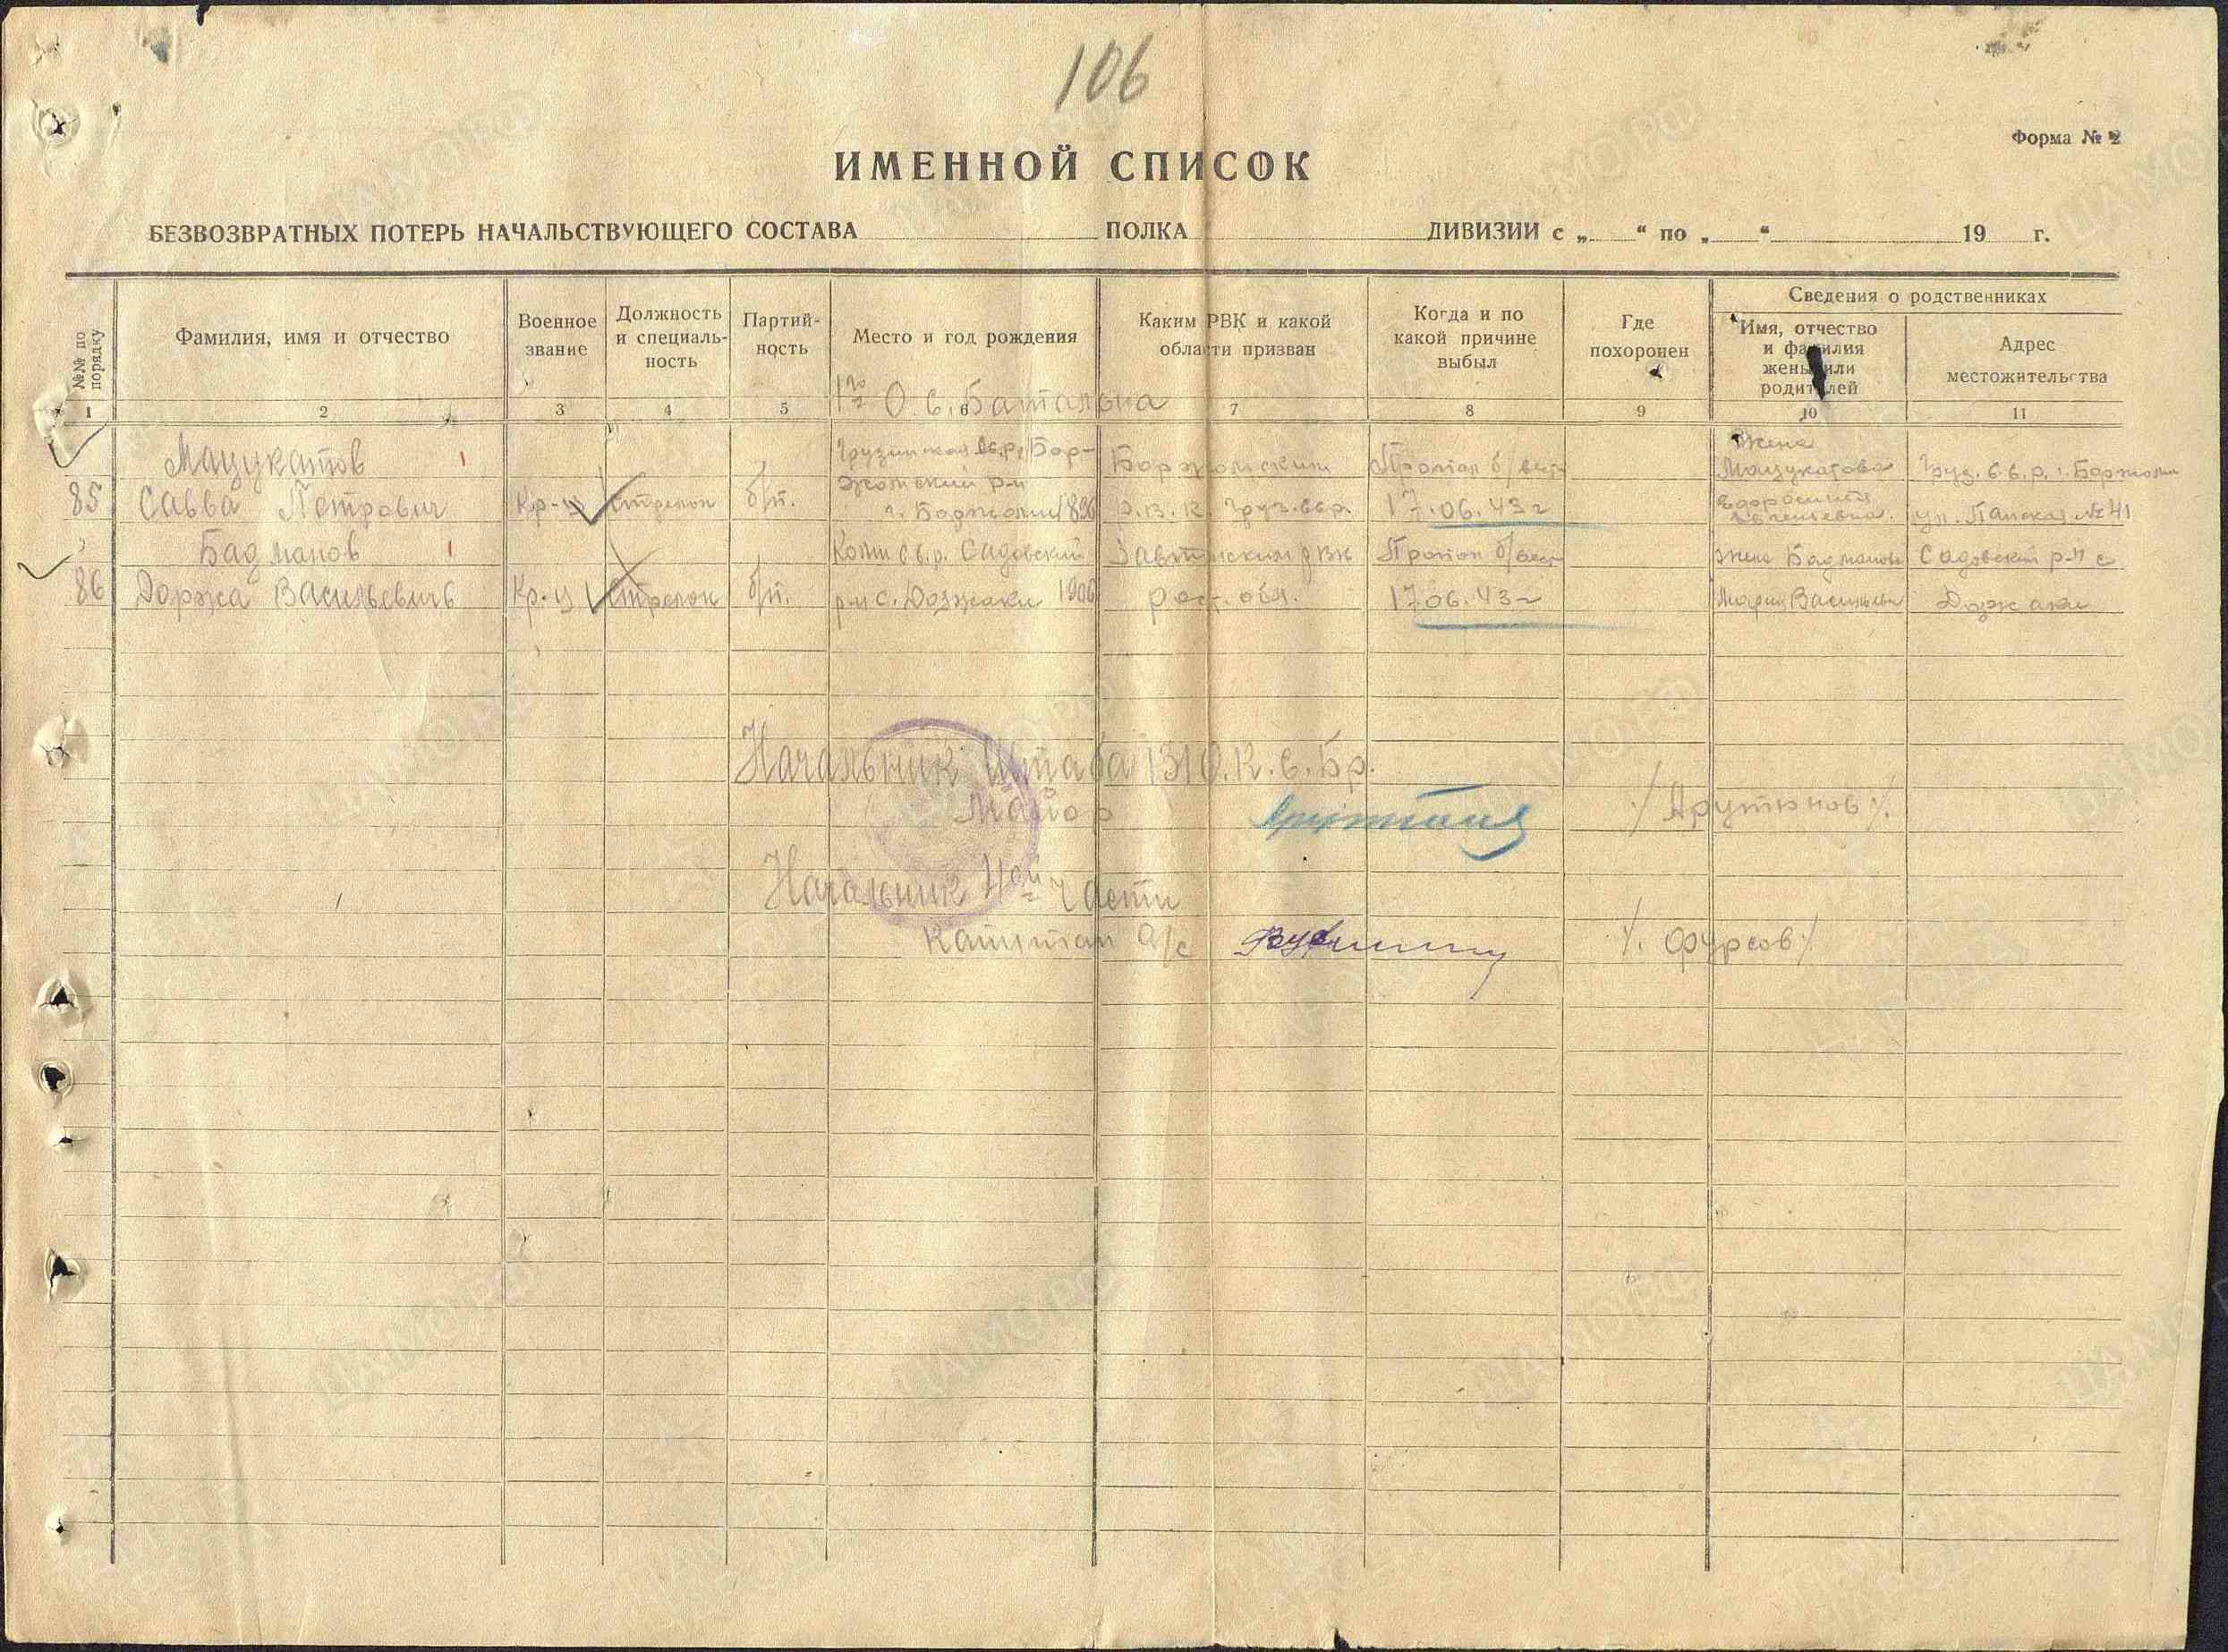 106
Форма № 2
ИМЕННОЙ СПИСОК
БЕЗВОЗВРАТНЫХ ПОТЕРЬ НАЧАЛЬСТВУЮЩЕГО СОСТАВА ПОЛКА ДИВИЗИИ с „ “ по „ “ 19 г.
№№ по порядку
Фамилия, имя и отчество
Военное звание
Должность и специальность
Партийность
Место и год рождения
Каким РВК и какой области призван
Когда и по какой причине выбыл
Где похоронен
Сведения о родственниках
Имя, отчество и фамилия жены или родителей
Адрес местожительства
1 2 3 4 5 6 7 8 9 10 11
1го О.с. Батальона
Мацукатов Грузинская сср, Бор- Боржомским Пропал б/вест Жена Мацукатова Груз. с.с.р. г. Боржоми
85 Савва Петрович Кр-ц стрелок б/п. жомский р-н г. Боржоми 1896 р.в.к. Груз. сср. 17.06.43г ул. №41
Бадманов Калм с.с.р. Садовский РВК Пропал б/вест жена Бадманова Садовский р-н с
86 Доржа Васильевич Кр-ц стрелок б/п. р-н с. 1906 рост. обл. 17.06.43г Мария
Начальник Штаба 131 О.К.с.бр.
Майор /Арутюнов/.
Начальник Iой части
капитан а/с /. Фурсов/
ЦАМО РФ